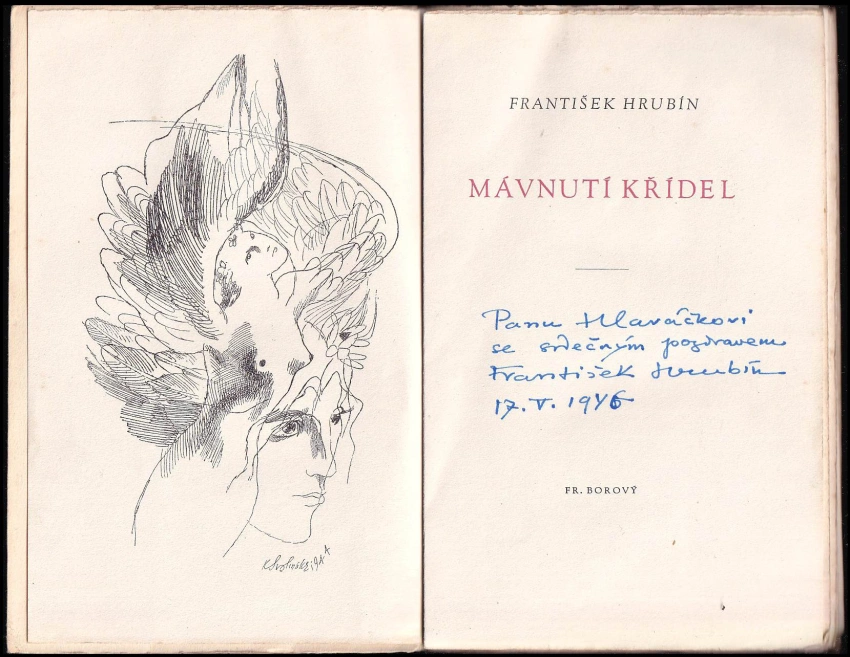 FRANTIŠEK HRUBÍN
MÁVNUTÍ KŘÍDEL
Panu Hlaváčkovi
se srdečným pozdravem
František Hrubín
17. V. 1946
FR. BOROVÝ